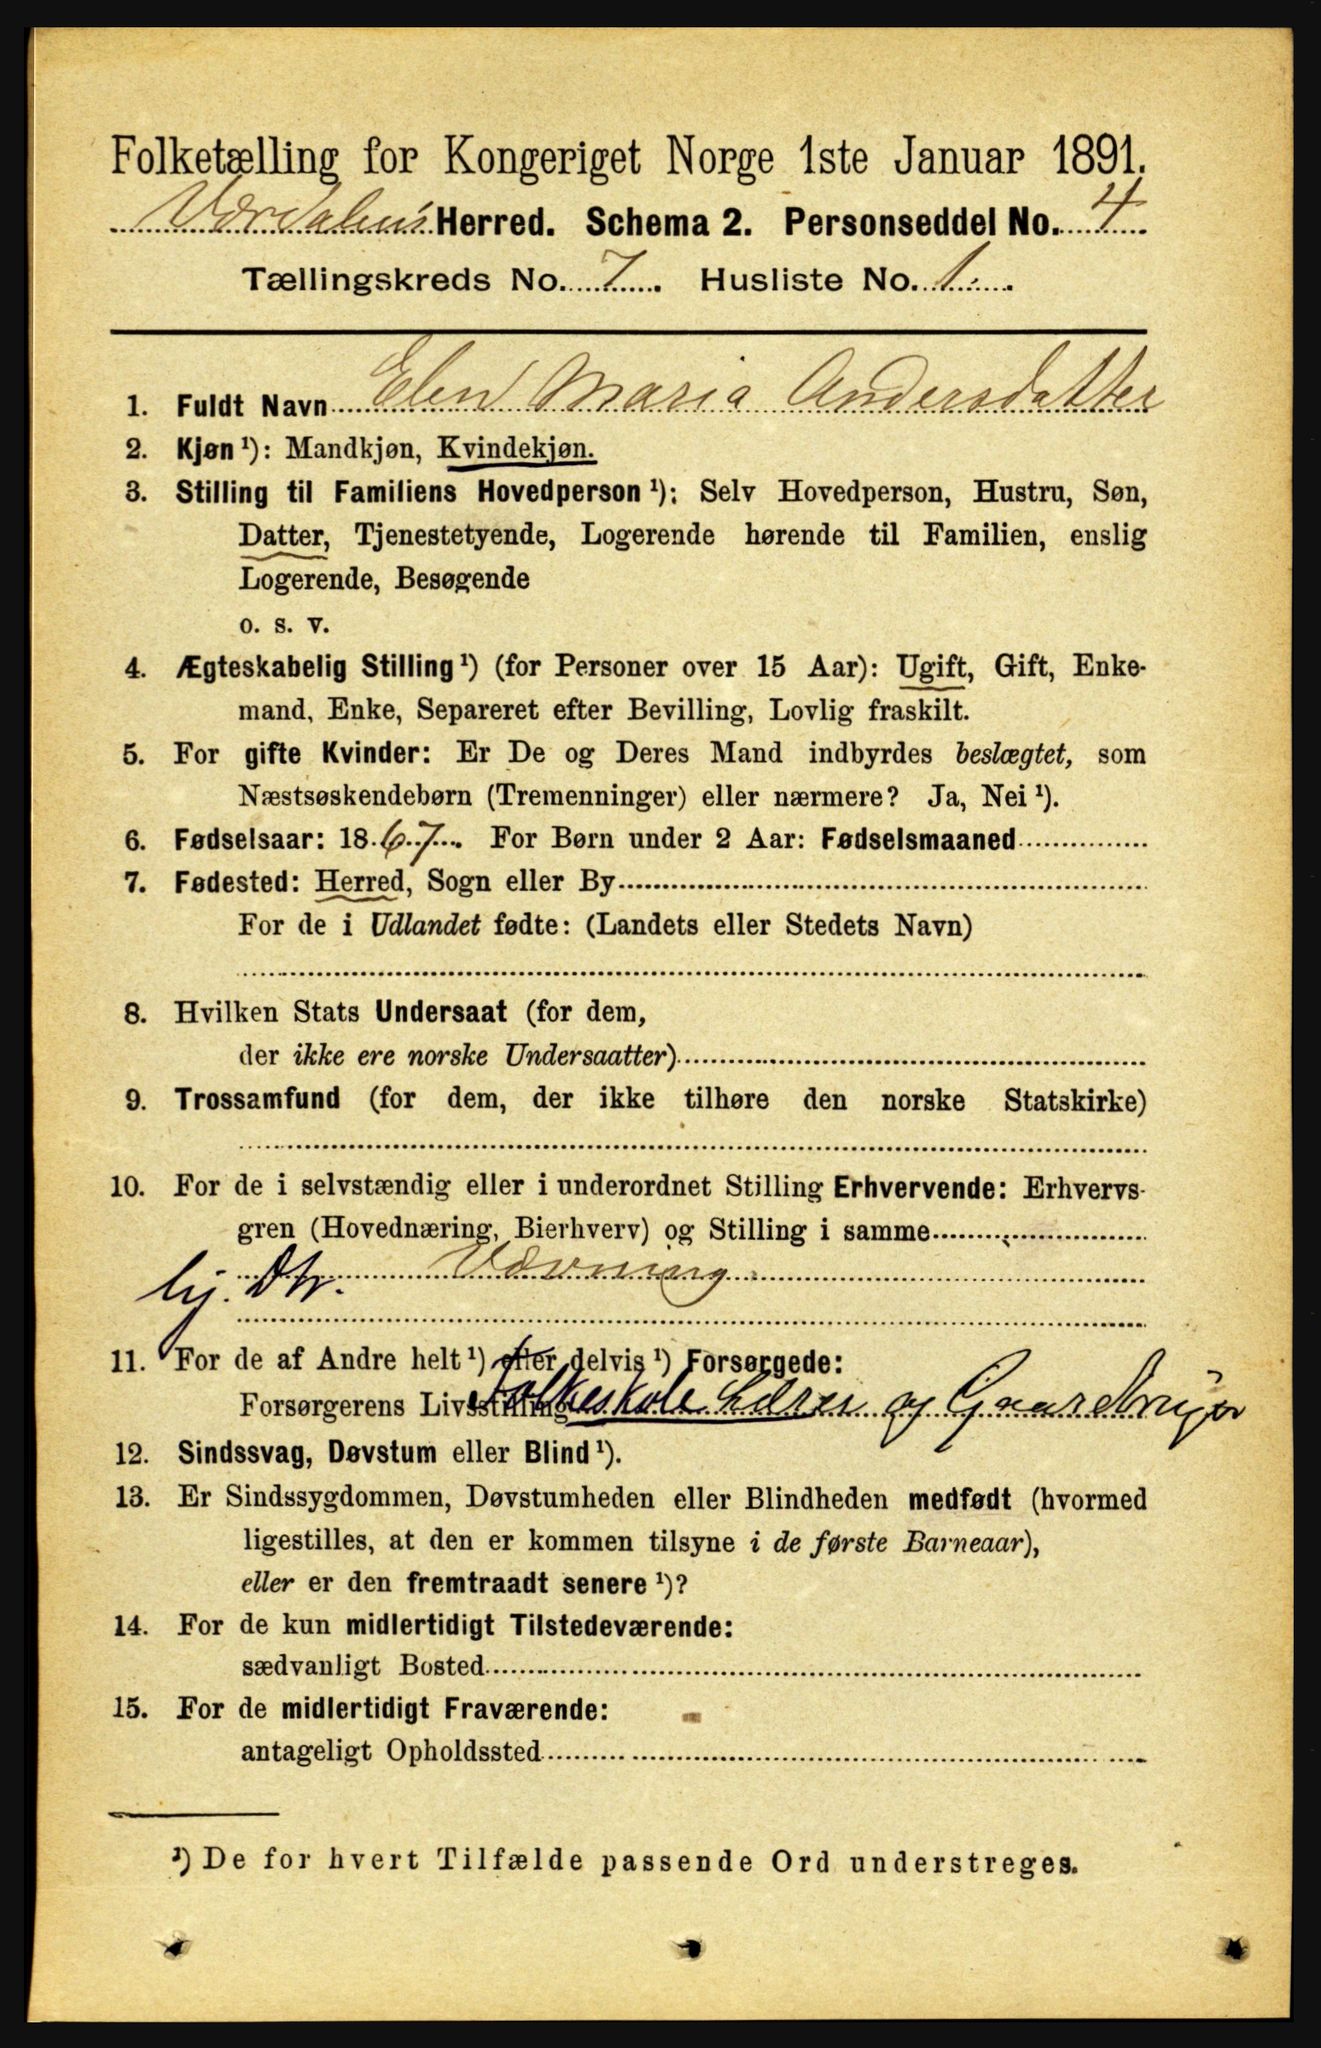 Folketælling for Kongeriget Norge 1ste Januar 1891.
Værdalens Herred. Schema 2. Personseddel No. 4
Tællingskreds No. 7. Husliste No. 1.
1. Fuldt Navn Elen Maria Andersdatter
2. Kjøn ¹): Mandkjøn, Kvindekjøn.
3. Stilling til Familiens Hovedperson ¹): Selv Hovedperson, Hustru, Søn,
Datter, Tjenestetyende, Logerende hørende til Familien, enslig
Logerende, Besøgende
o. s. v.
4. Ægteskabelig Stilling ¹) (for Personer over 15 Aar): Ugift, Gift, Enke-
mand, Enke, Separeret efter Bevilling, Lovlig fraskilt.
5. For gifte Kvinder: Er De og Deres Mand indbyrdes beslægtet, som
Næstsøskendebørn (Tremenninger) eller nærmere? Ja, Nei ¹).
6. Fødselsaar: 1867. For Børn under 2 Aar: Fødselsmaaned
7. Fødested: Herred, Sogn eller By
For de i Udlandet fødte: (Landets eller Stedets Navn)
8. Hvilken Stats Undersaat (for dem,
der ikke ere norske Undersaatter)
9. Trossamfund (for dem, der ikke tilhøre den norske Statskirke)
10. For de i selvstændig eller i underordnet Stilling Erhvervende: Erhvervs-
gren (Hovednæring, Bierhverv) og Stilling i samme
Vævning
hj. Dtr.
11. For de af Andre helt ¹) eller delvis ¹) Forsørgede:
Forsørgerens Livsstilling Folkeskole Lærer og Gaardbruger
12. Sindssvag, Døvstum eller Blind ¹).
13. Er Sindssygdommen, Døvstumheden eller Blindheden medfødt (hvormed
ligestilles, at den er kommen tilsyne i de første Barneaar),
eller er den fremtraadt senere ¹)?
14. For de kun midlertidigt Tilstedeværende:
sædvanligt Bosted
15. For de midlertidigt Fraværende:
antageligt Opholdssted
¹) De for hvert Tilfælde passende Ord understreges.